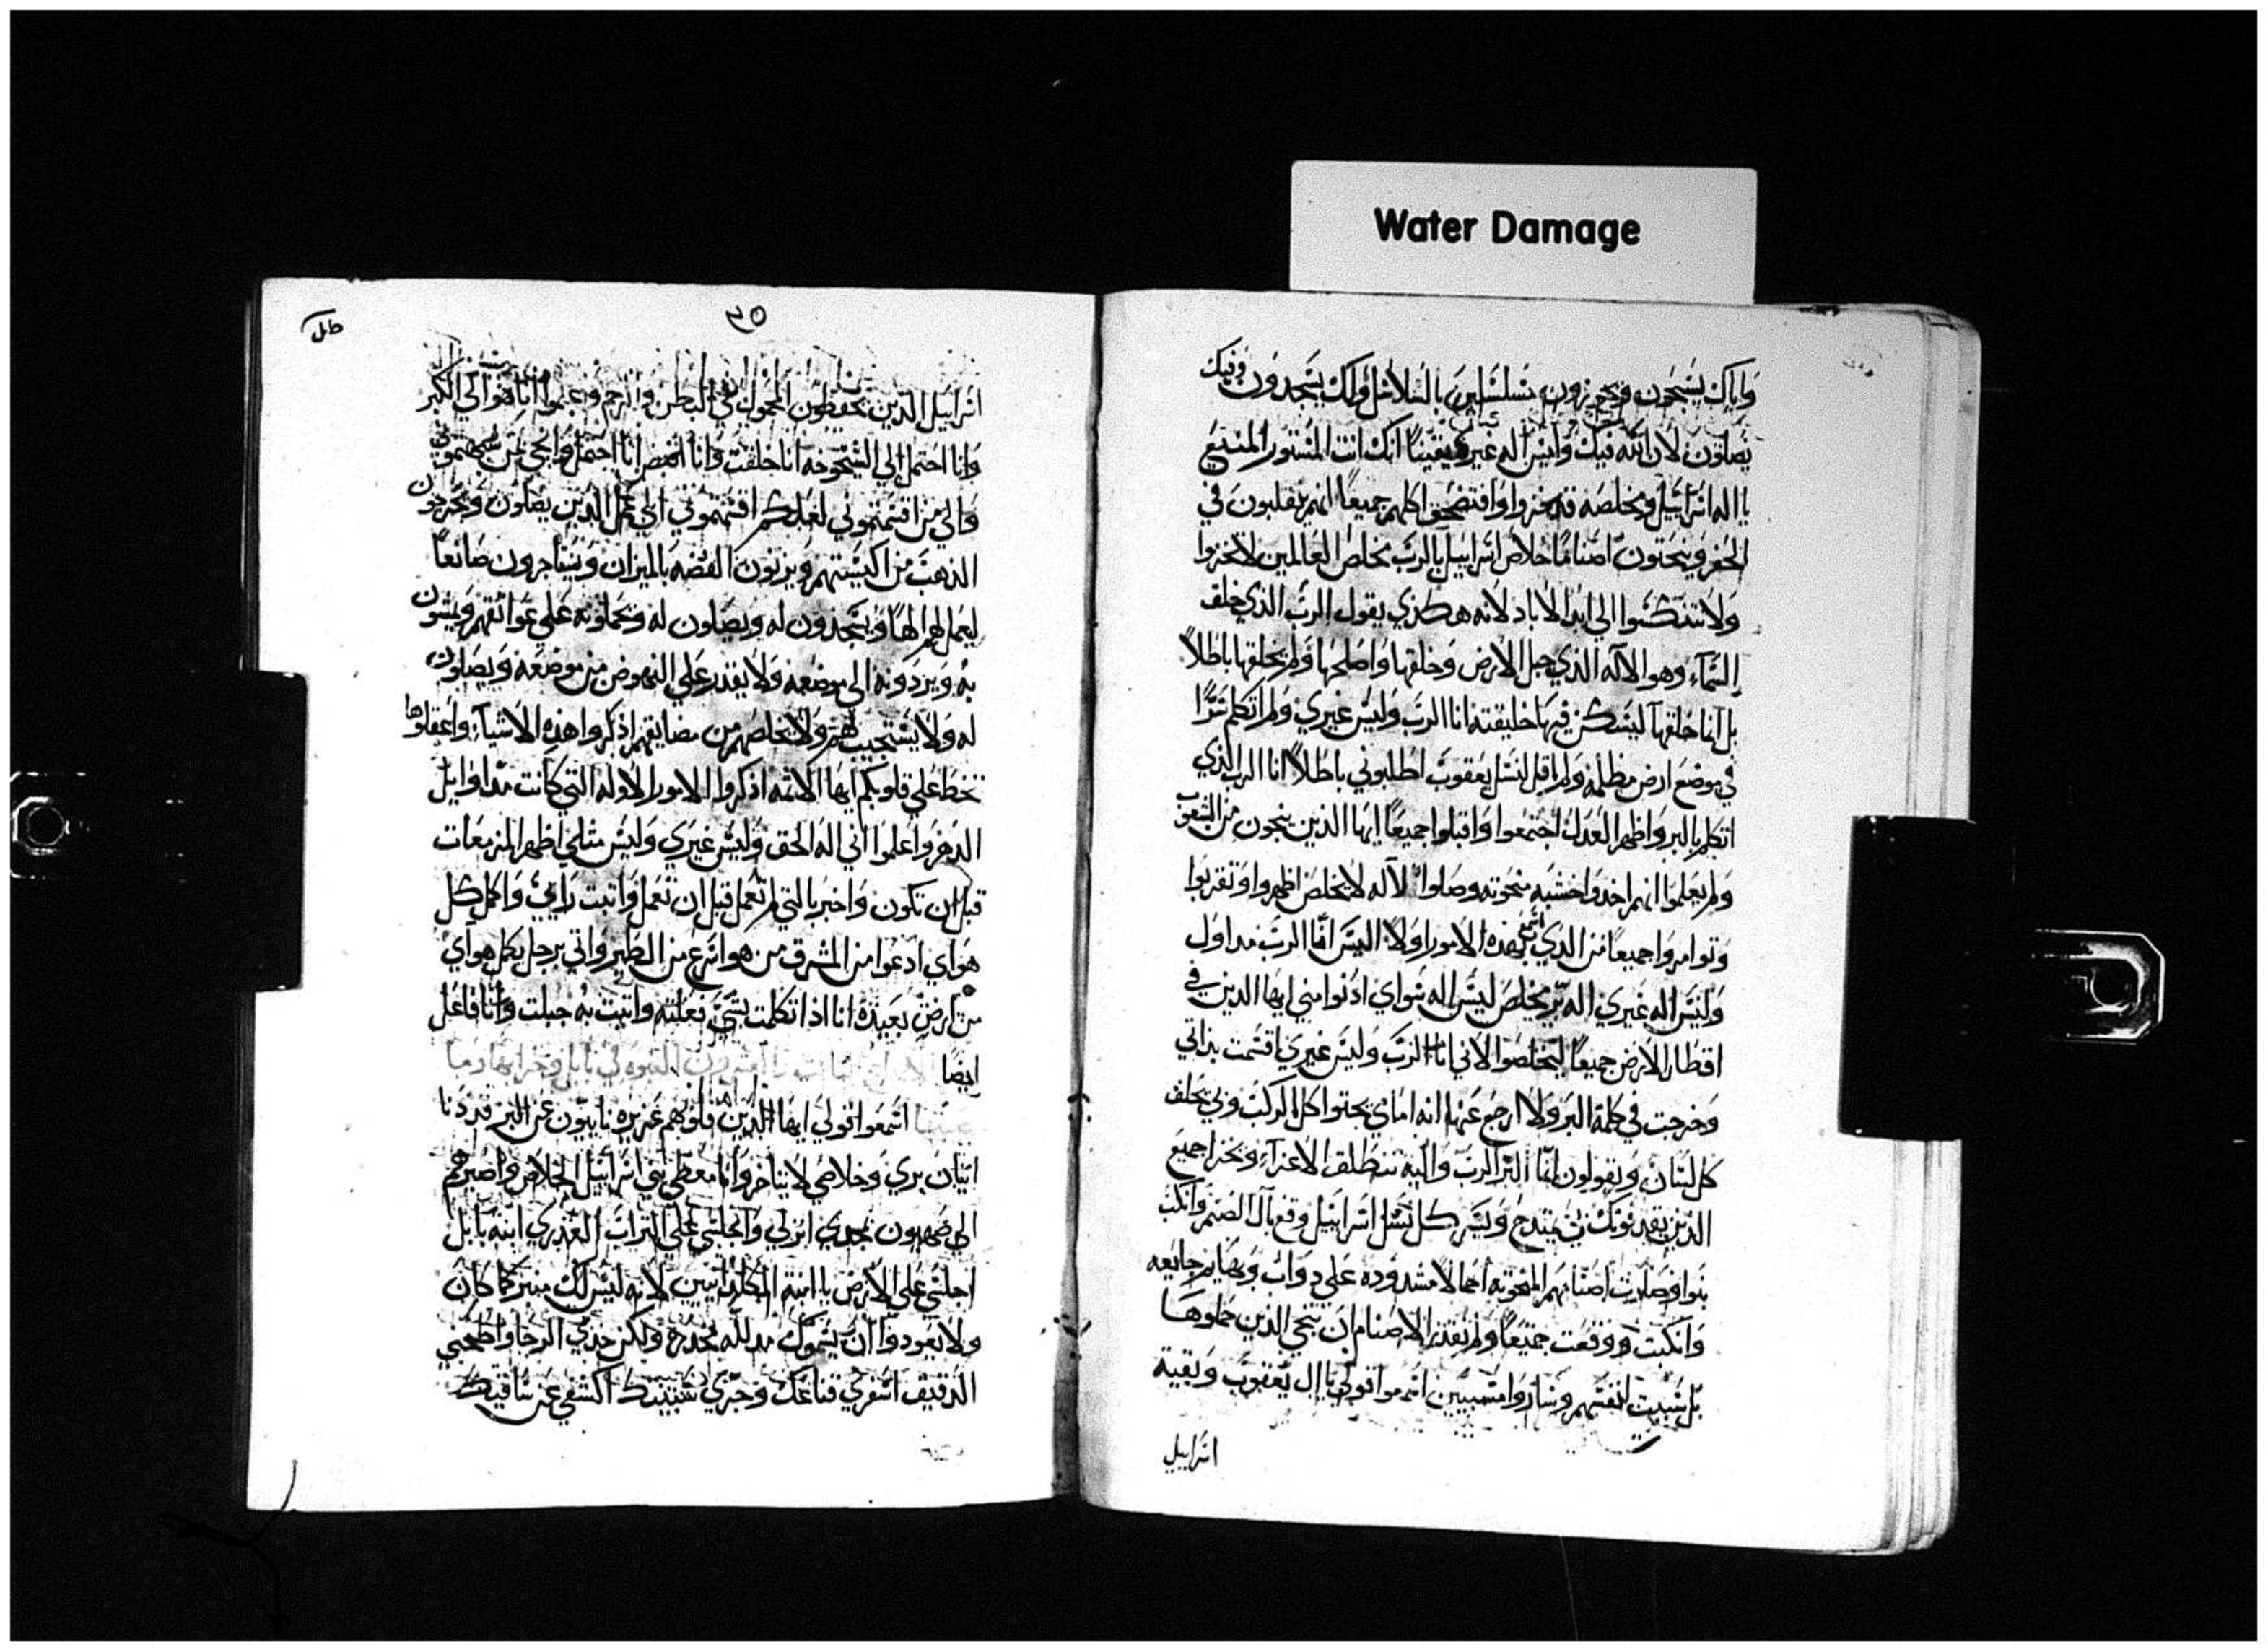 Water Damage
واياك يسجدون ويجوزون مسلسلين بالسلاسل ولك يسجدون وفيك
يصلون لان الله فيك وليس اله غيرك يقينًا انك انت المستور المنيع
يا اله اسراييل ومخلصه قد خزوا وافتضحوا كلهم جميعًا انهم يتقلبون في
الخفر وينحتون اصنامًا خلاص اسراييل بالرب مخلص العالمين لا تخزوا
ولا تنتكسوا الى ابد الاباد لانه هكذي يقول الرب الذي خلق
السماء وهو الاله الذي جبل الارض وخلقها واصلحها ولم يخلقها باطلاً
بل انما خلقها ليسكن فيها خليقته انا الرب وليس غيري ولم اتكلم سرًا
في موضع ارض مظلمه ولم اقل لنسل يعقوب اطلبوني باطلاً انا الرب الذي
اتكلم بالبر واظهر العدل اجتمعوا واقبلوا جميعًا ايها الذين ينجون من الشعوب
ولم يعلموا انهم اخذوا خشبه منحوته وصلوا لاله لا يخلص اظهروا وتقربوا
وتوامروا جميعًا من الذي سمع بهذه الامور اولاً اليس انا الرب مداول
وليس اله غيري اله بر مخلص ليس اله سواي ادنوا مني ايها الذين في
اقطار الارض جميعًا لتخلصوا لاني انا الرب وليس غيري اقسمت بذاتي
وخرجت في كلمة البر ولا ارجع عنها انه اماي يجثوا كل الركب وبي يحلف
كل لسان ويقولون انما البر الرب واليه تنطلق الاعزآء ويخزا جميع
الذين يقدنونك يمتدح ويسر كل نسل اسراييل وقع بال الصنم وانكب
نبوا وصارت اصنامهم المنحوته احمالا مشدوده على دواب وبهايم جايعه
وانكبت ووقعت جميعًا ولم تقدر الاصنام ان تنجي الذين حملوها
بل سبيت انفسهم وساروا مسبيين اسمعوا قولي يا ال يعقوب وبقية
اسراييل
٣٥
اسراييل الذين تحفظون المحمول في البطن والرحم واعلموا انا هو الى الكبر
وانا احتمل الى الشيخوخه انا خلقت وانا احتمل وانجي بمن شبهتموني
والى من اقستموني لعلكم اقستموني الى عمل الذين يضلون ويخرجون
الذهب من اكيستهم ويزنون الفضه بالميزان ويستاجرون صانعًا
ليعمل لهم الهًا ويسجدون له ويصلون له ويحملونه على عواتقهم ويمشون
به ويردونه الى موضعه ولا يقدر على النهوض من موضعه ويصلون
له ولا يستجيب لهم ولا يخلصهم من مضايقهم اذكروا هذه الاشيآء واعقلوها
تخط على قلوبكم ايها الاثمه اذكروا الامور الاوله التي كانت مند اوايل
الدهر واعلموا اني اله الحق وليس غيري وليس مثلي اظهر المزمعات
قبل ان تكون واخبر بالتي لم تعمل قبل ان تعمل واثبت رايي واكمل كل
هواي ادعوا من المشرق من هو اسرع من الطير واتي برجل يكمل هواي
من ارض بعيدة انا اذا تكلمت بشي فعلته واتيت به جبلت وانا فاعل
ايضًا
اسمعوا قولي ايها الذين قلوبهم عزيزه نايبون عن البر قد دنا
اتيان بري وخلاصي لا يتاخر وانا معطي بني اسراييل الخلاص واصيرهم
الى صهيون مجدي انزلي واجلسي على التراب العذري ابنة بابل
اجلسي على الارض يا ابنة الكلدانيين لانه ليس لك منبر كما كان
ولا يعودوا ان يسموك مدلله مخدره ولكن خذي الرحا واطحني
الدقيق اسفري قناعك وجزي شيبتك اكشفي عن ساقيك